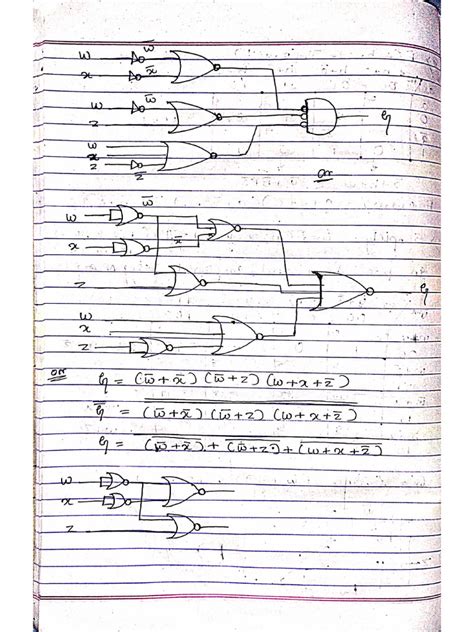 w w̅
x x̅
w w̅
z
y
w
x
z z̅
or
w w̅
x x̅
z
y
w
x
z
or y = (w̅+x̅) (w̅+z) (w+x+z̅)
y̅ = (w̅+x̅) (w̅+z) (w+x+z̅)
y = (w̅+x̅) + (w̅+z) + (w+x+z̅)
w
x
z